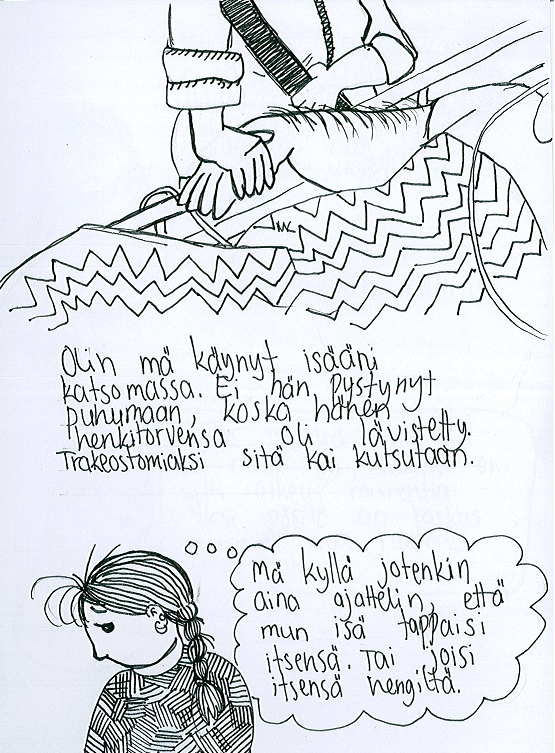 Olin mä käynyt isääni
katsomassa. Ei hän pystynyt
puhumaan, koska hänen
henkitorvensa oli lävistetty.
Trakeostomiaksi sitä kai kutsutaan.
Mä kyllä jotenkin
aina ajattelin, että
mun isä tappaisi
itsensä. Tai joisi
itsensä hengiltä.